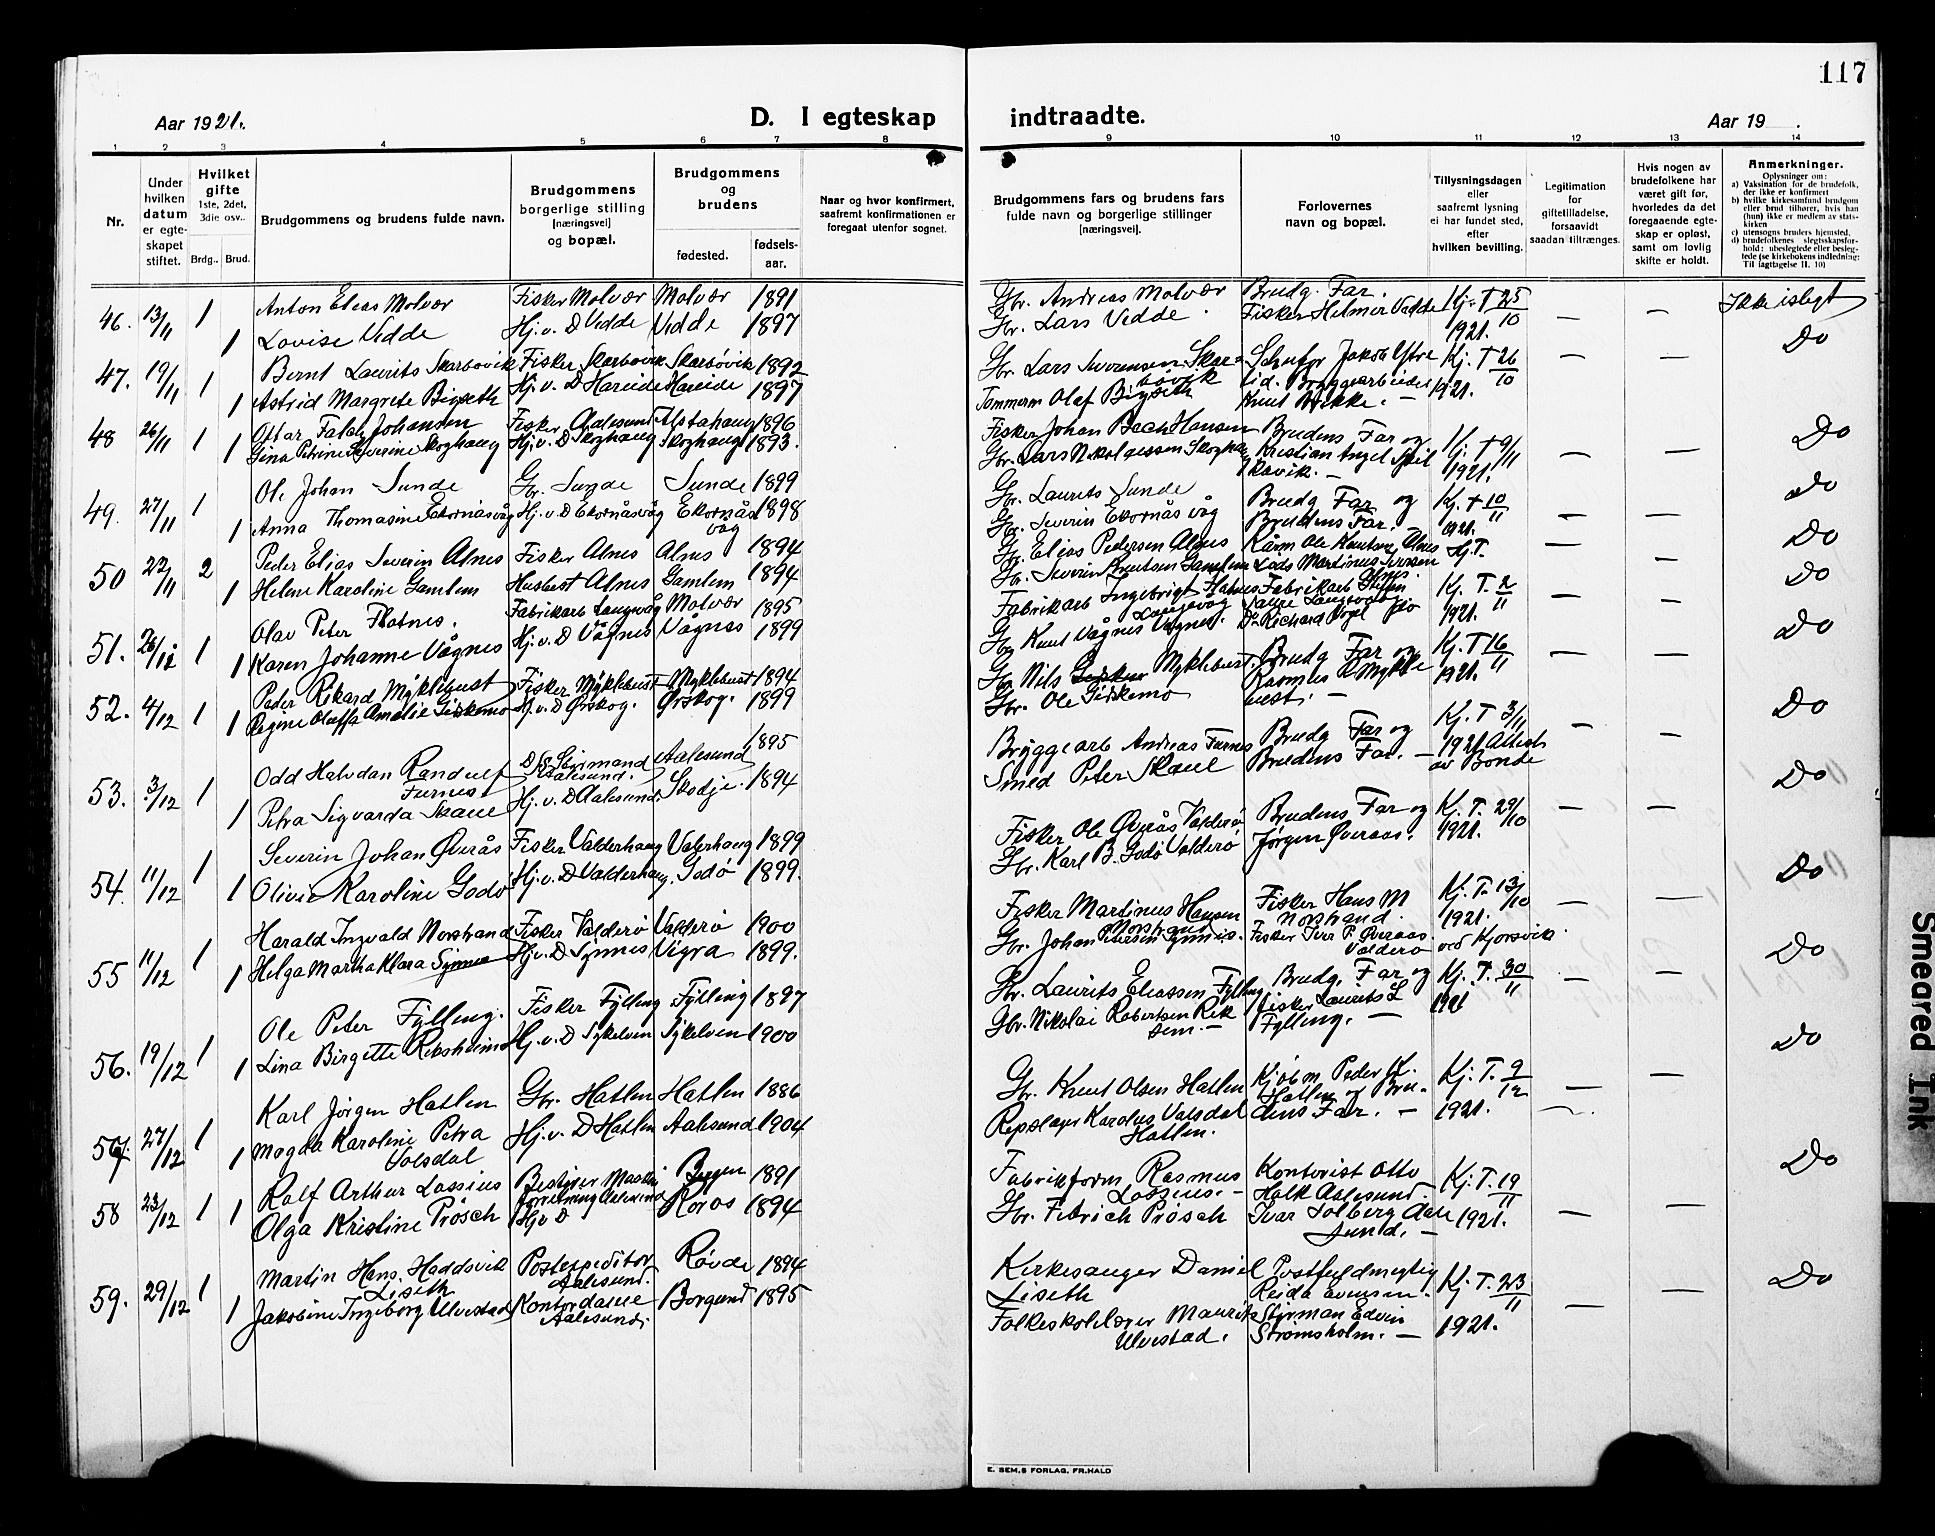 117
Aar 1921.
D. I egteskap
indtraadte.
Aar 19 .
1 2 3 4 5 6 7 8
9 10 11 12 13 14
Nr.
Under hvilken datum er egte-skapet stiftet.
Hvilket gifte 1ste, 2det, 3die osv..
Brdg.. Brud.
Brudgommens og brudens fulde navn.
Brudgommens borgerlige stilling [næringsvei] og bopæl.
Brudgommens og brudens
fødested.
fødsels-aar.
Naar og hvor konfirmert, saafremt konfirmationen er foregaat utenfor sognet.
Brudgommens fars og brudens fars fulde navn og borgerlige stillinger [næringsvei].
Forlovernes navn og bopæl.
Tillysningsdagen eller saafremt lysning ei har fundet sted, efter hvilken bevilling.
Legitimation for giftetilladelse, forsaavidt saadan tiltrænges.
Hvis nogen av brudefolkene har været gift før, hvorledes da det foregaaende egte-skap er opløst, samt om lovlig skifte er holdt.
Anmerkninger.
Oplysninger om:
a) Vaksination for de brudefolk, der ikke er konfirmert
b) hvilke kirkesamfund brudgom eller brud tilhører, hvis han (hun) ikke er medlem av stats-kirken
c) utensogns bruders hjemsted,
d) brudefolkenes slegtsskapsfor-hold: ubeslegtede eller besleg-tede (se kirkebokens indledning: Til Iagttagelse II. 10)
46. 13/11 1 Anton Elias Molvær Fisker Molvær Molvær 1891 Gbr. Andreas Molvær Brudg. Far. Kj. T 25/10 — — Ikke islegt
1 Lovise Vedde Hj. v. D Vedde Vedde 1897 Gbr. Lars Vedde. Fisker Helmer Vedde 1921.
47. 19/11 1 Bernt Laurits Skarbøvik Fisker Skarbøvik Skarbøvik 1892 Gbr. Lars Jakob Ystre Kj. T 26/10 — — Do
1 Astrid Margrete Hj. v. D Hareide Hareide 1897 Tømmerm Olaf Bryggearbeider Knut 1921.
48 26/11 1 Ottar Falch Johansen Fisker Aalesund Alstahaug 1896 Fisker Johan Bech Hansen Brudens Far og Kj. T 9/11 — — Do
1 Gina Petrine Severine Skoghaug Hj. v. D Skoghaug Skoghaug 1893. Gbr. Lars Kristian 1921.
49. 27/11 1 Ole Johan Sunde Gbr. Sunde Sunde 1899 Gbr. Laurits Sunde Brudg Far og Kj. T 10/11 — — Do
1 Anna Thomasine Ekornåsvåg Hj. v. D Ekornåsvåg Ekornåsvåg 1898 Gbr. Severin Ekornåsvåg Brudens Far. — 1921.
50 27/11 2 Peder Elias Severin Alnes Fisker Alnes Alnes 1894 Gbr. Elias Pedersen Alnes Ole Knutsen Alnes Kj. T. — — Do
1 Helene Karoline Gamlem Husbest Alnes Gamlem 1894 Gbr. Severin Knutsen Gamlem Lods Martinus Iversen Alnes. Do
51. 26/11 1 Olav Peter Flatnes. Fabrikarb Langevåg Molvær 1895 Fabrikarb Ingebrigt Langevåg Fabrikarb Kj. T. 2/11 — —
1 Karen Johanne Vågnes Hj. v. D Vågnes Vågnes 1899 Gbr Knut Vågnes Vågnes. Richard 1921. Do
52. 4/12 1 Peder Rikard Myklebust Fisker Myklebust Myklebust 1894 Gbr Nils Myklebust. Brudg Far og Kj. T 16/11 — —
1 Regine Oluffa Amalie Giskemo Hj. v. D Ørskog. Ørskog. 1899 Gbr. Ole Giskemo Rasmus R Myklebust. — 1921. Do
53. 3/12 1 Odd Halvdan Randulf Furnes Styrmand Aalesund. Aalesund 1895 Bryggearb Andreas Furnes Brudg Far og Kj. T 3/11 — —
1 Petra Sigvarda Skaue Hj. v. D Aalesund. Skodje. 1894 Smed Peter Skaue Brudens Far. — 1921 Attest av Bonde Do
54. 11/12 1 Severin Johan Øverås Fisker Valderhaug Valerhaug 1899 Fisker Ole Øverås Valderø Brudens Far og Kj. T. 29/10 — —
1 Olivie Karoline Godø Hj. v. D Valderhaug. Godø 1899. Gbr. Karl B. Godø Valderø Jørgen Øveraas. 1921. Do
55 11/12 1 Harald Ingvald Norstrand Fisker Valderø Valderø 1900 Fisker Martinus Hansen Norstrand Fisker Hans M Norstrand. Kj. T. 13/10 1921. — —
1 Helga Martha Klara Synnes Hj. v. D Synnes Vigra 1899. Gbr. Johan Petersen Synnes. Fisker Iver P. Øveraas Valderø ved Kjørsvik. Do
56. 19/12 1 Ole Peter Fylling. Fisker Fylling Fylling 1897 Gbr. Laurits Eliassen Fylling Brudg. Far og Kj. T. 30/11 — —
1 Lina Birgitte Reksheim Hj. v. D Sykelven Sykelven 1900 Gbr. Nikolai Robertsen — Fisker Laurits L Fylling. — 1921 Do
57. 27/12 1 Karl Jørgen Hatlen Gbr. Hatlen Hatlen 1886 Gbr. Knut Olsen Hatlen Kjøbm Peder K. Hatlen og Bru- Kj. T. 9/12 — —
1 Magda Karoline Petra Volsdal Hj. v. D Hatlen Aalesund 1904 Repslager Karolus Volsdal Hatlen. dens Far. — 1921. —
58 23/12 1 Rolf Arthur Lossius Bestyrer Aalesund Bergen 1891 Fabrikform Rasmus Lossius. — Kontorist Otto Holk Aalesund. Kj. T. 19/11 — — Do
1 Olga Kristine Prösch Hj v D Røros 1894 Gbr. Fredrich Prösch Ivar Solberg Aalesund. — 1921.
59. 29/12 1 Martin Hans. Haddsvik Liseth Postexpeditør Aalesund. Røvde 1894 Kirkesanger Daniel Liseth Postfuldmegtig Reidar Evensen. Kj. T. 23/11 — — Do
1 Jakobine Ingeborg Ulvestad Kontordame Aalesund. Borgund 1895 Folkeskolelærer Maurits Ulvestad. Styrman Edvin Strømsholm. — 1921.
E. SEM,S FORLAG, FR.HALD
Smeared Ink